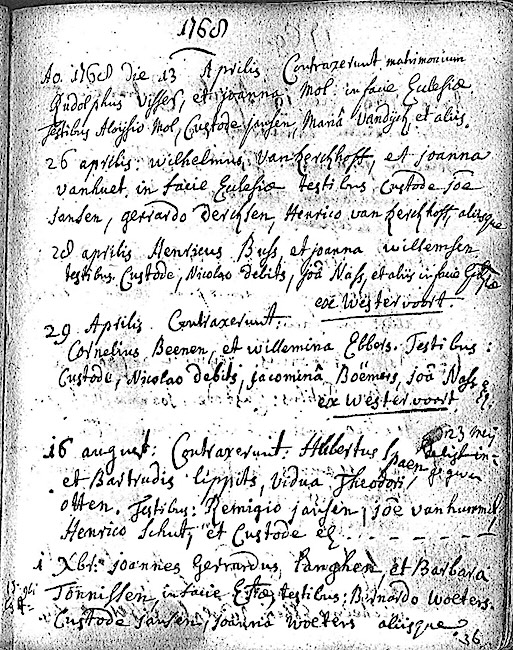 1768
Ao. 1768 die 13 Aprilis Contraxerunt matrimonium
Rudolphus Visses, et joanna Mol: in facie Eclesiæ
testibus Aloysio Mol, Custode jansen, Mariâ Vandijck, et aliis.
26 aprilis: wilhelmus Van Kerckhoff, et joanna
vanhuet. in facie Eclesiæ testibus Custode joe
jansen, gerrardo Dercksen, Henrico van Kerckhoff, aliisque
28 aprilis Henricus Buss, et joanna willemsen
testibus. Custode, Nicolao debits, joâ Nass, et aliis in facie
ex Westervoort.
29 Aprilis Contraxerunt.
Cornelius Beenen, et willemina Ebbers. Testibus:
Custode, Nicolao debits, jacominâ Boëmers, joâ Nass
ex Westervoort
16 august: Contraxerunt. Hubertus Spaen
23 meij
et Bartrudis lippits, vidua Theodori
otten. Testibus: Remigio jansen, joê vanhummel
Henrico Schut, et Custode
1 Xbr: joannes Gerrardus Langhen, et Barbara
Tonnissen, in facie testibus: Bernardo woeters.
Custode jansen, joannâ woeters aliisque
36